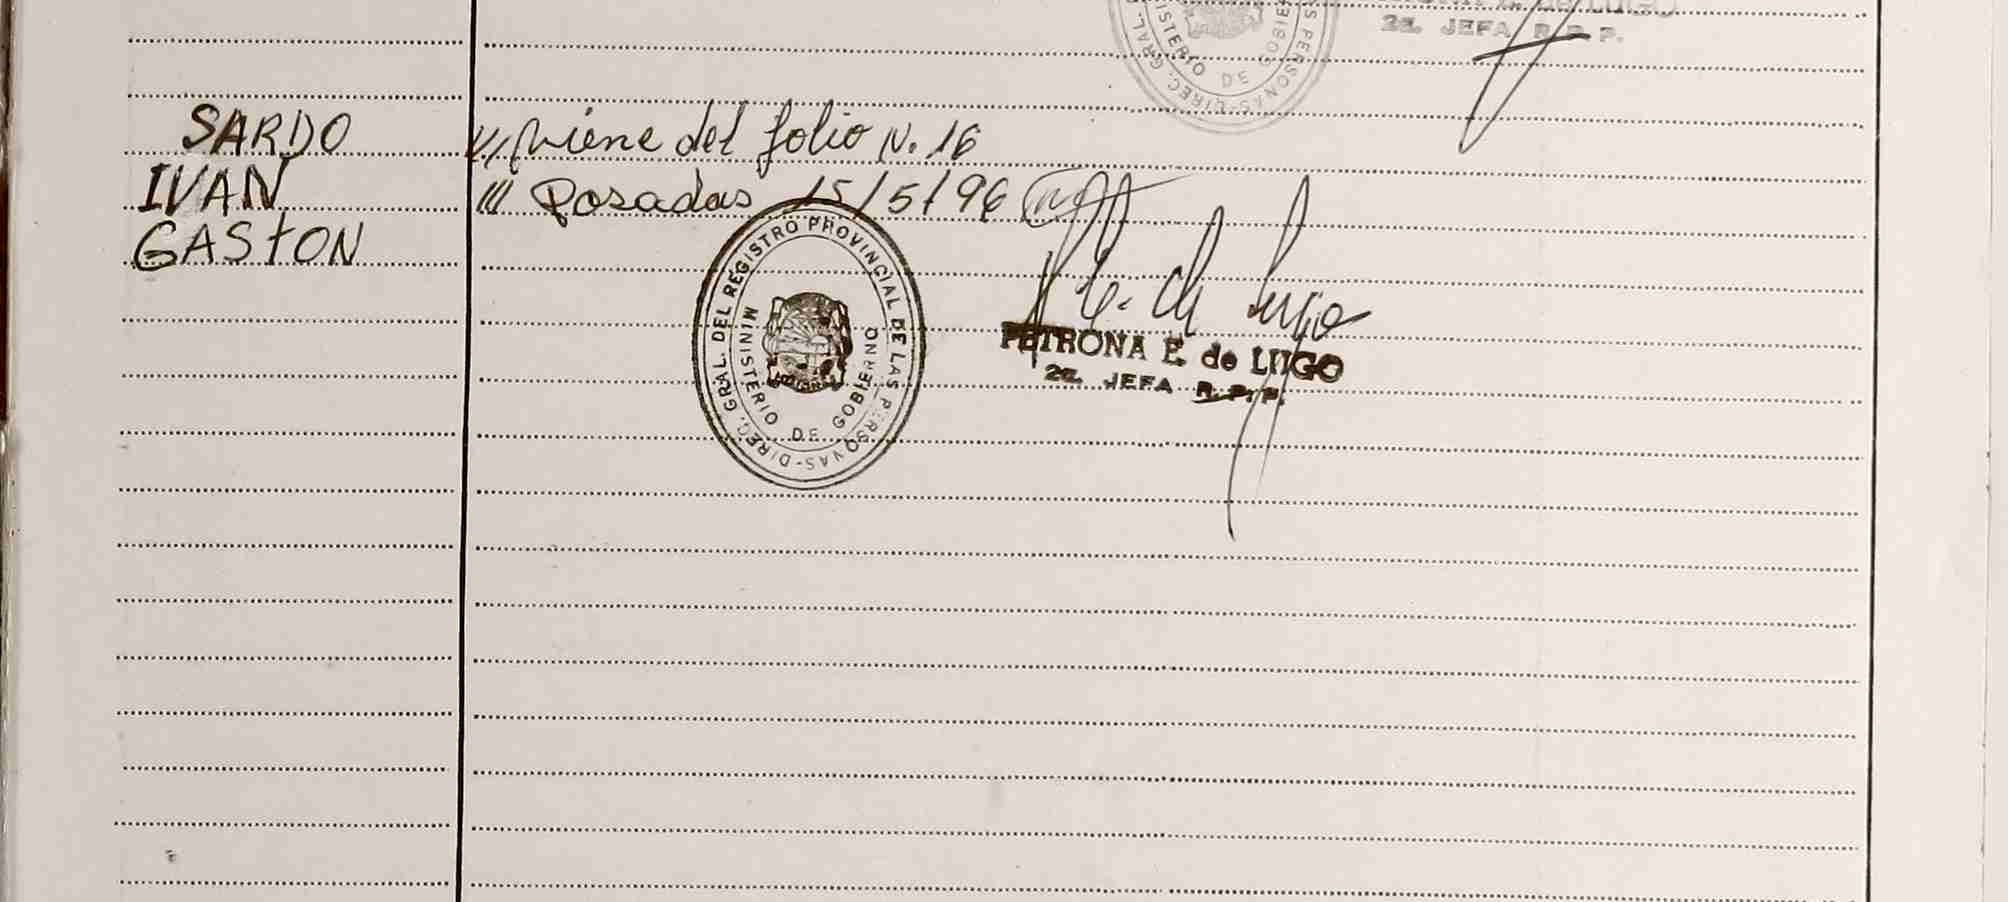 2a. JEFA R.P.P.
SARDO
/// Viene del folio N. 16
IVAN
/// Posadas 15/5/96
GASTON
DIREC. GRAL. DEL REGISTRO PROVINCIAL DE LAS PERSONAS-
MINISTERIO DE GOBIERNO
PETRONA E. de LUGO
2a. JEFA R.P.P.